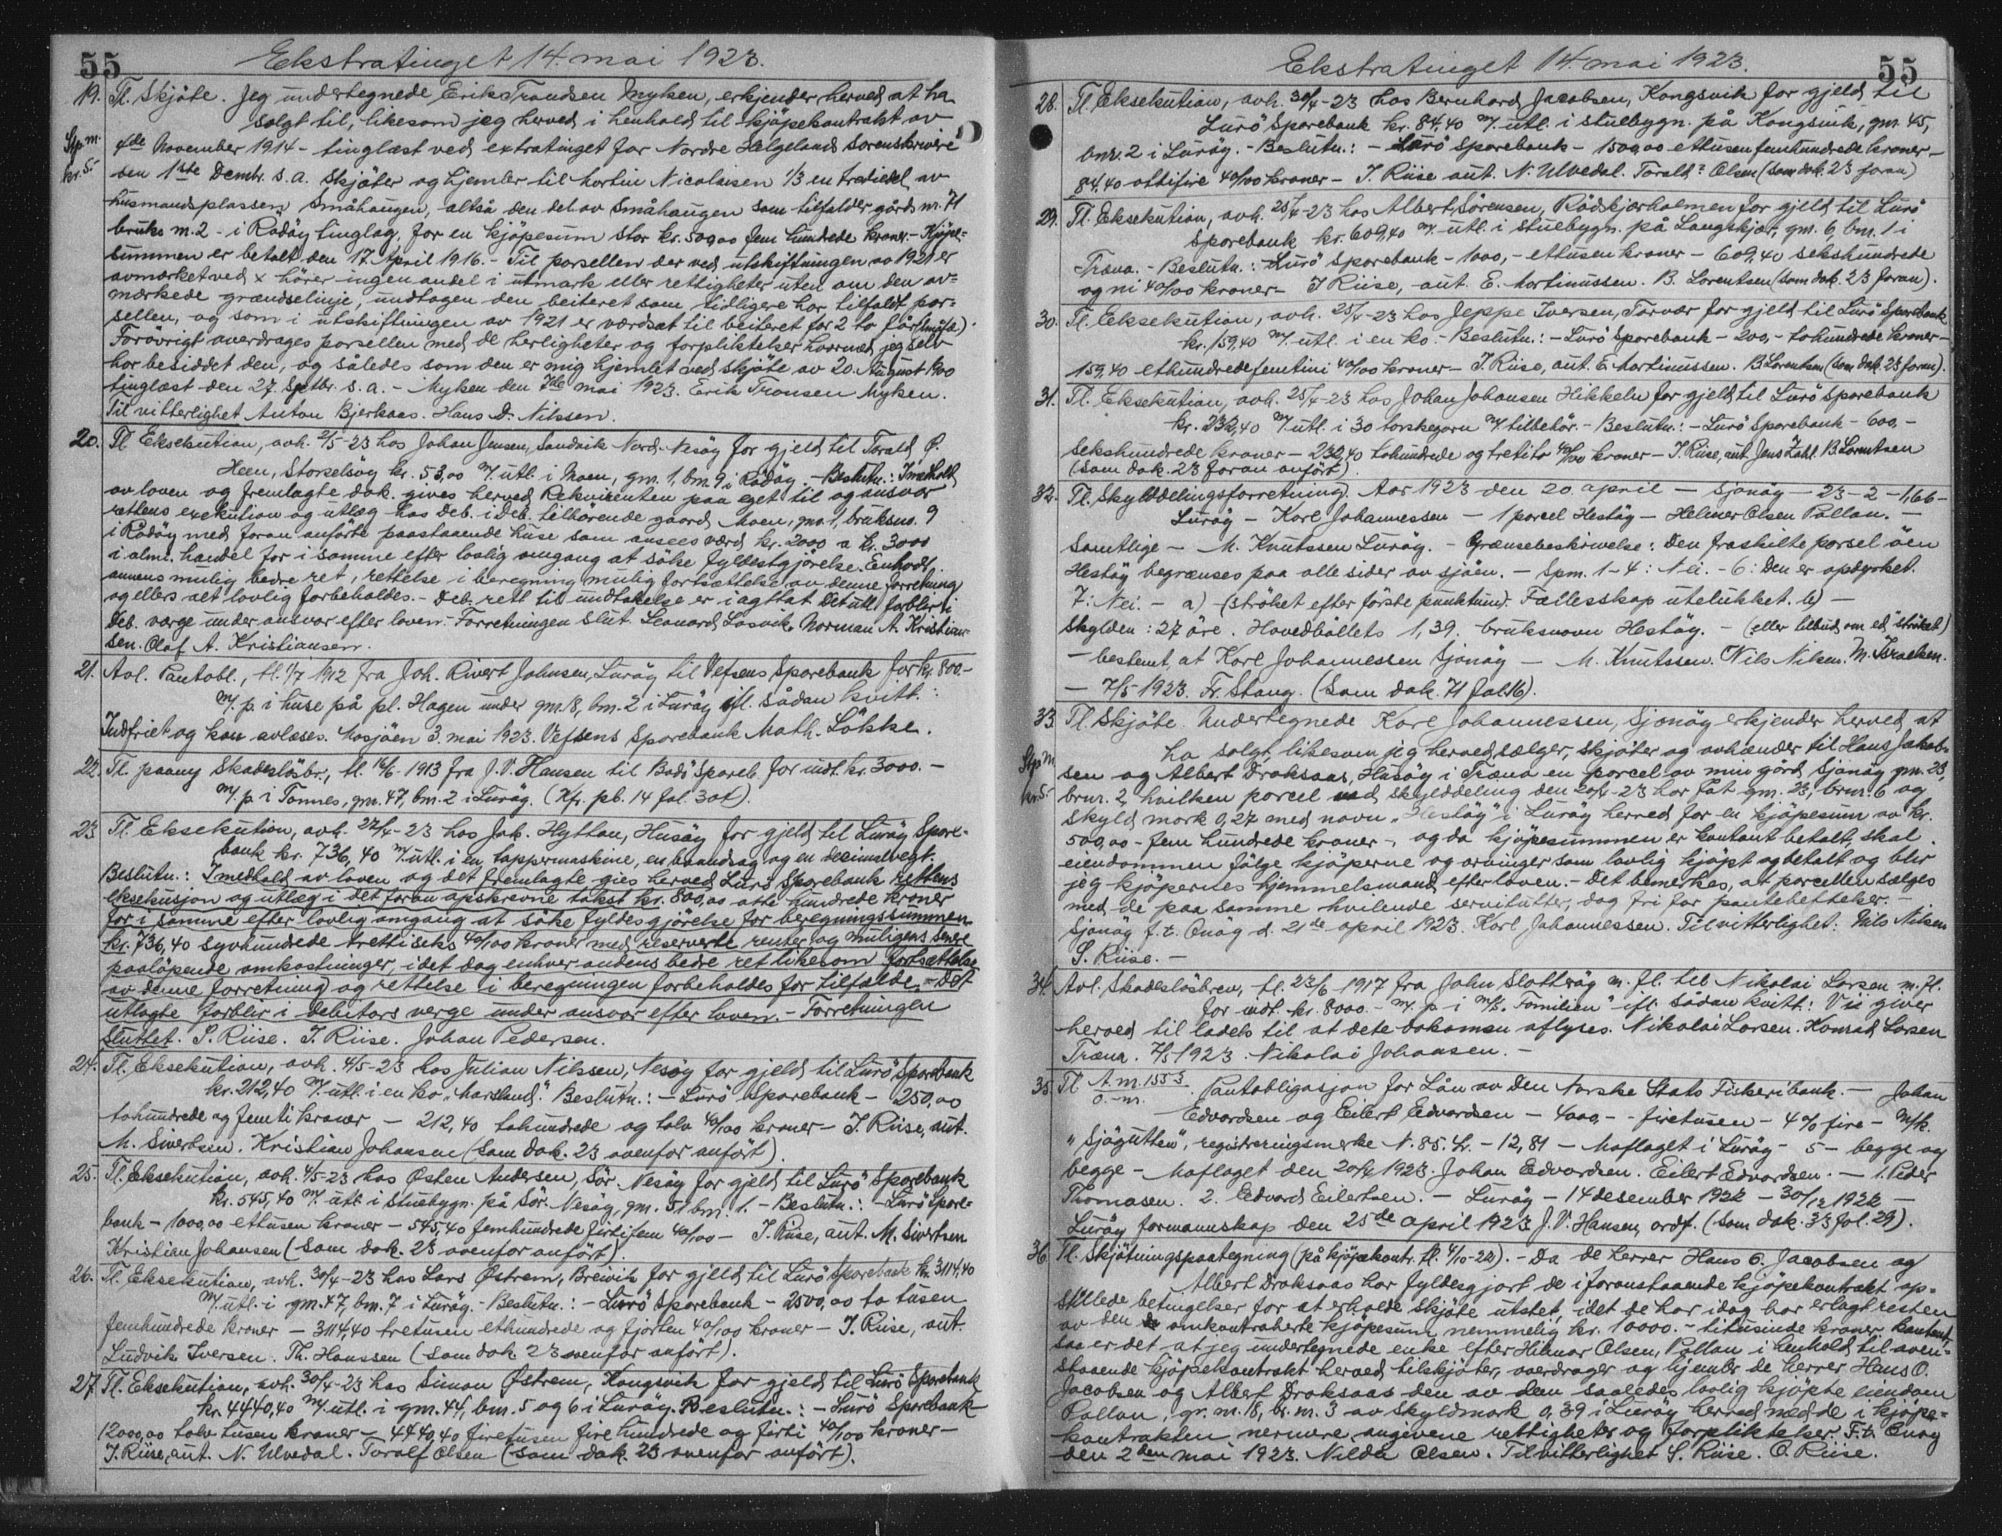 55
Ekstratinget 14 mai 1923.
19. Tl. Skjöte. Jeg undertegnede Erik Trondsen Myken, erkjender herved at ha
solgt til, likesom jeg herved i henhold til kjöpekontrakt av
Stp.m. kr. 5.- 4de November 1914 - tinglæst ved extratinget for Nordre Helgelands Sorenskriveri
den 1ste Decmbr. s.a. skjöter og hjemler til Martin Nicolaisen 1/3 en tredjedel av
husmandsplassen Småhaugen, altså den del av Småhaugen som tilfalder gårds nr. 71
bruks nr. 2 - i Rödöy tinglag, for en kjöpesum stor kr. 500,00 fem hundrede kroner. - Kjöpe-
summen er betalt den 17. April 1916. - Til parsellen der ved utskiftningen av 1921 er
avmerket ved x hörer ingen andel i utmark eller rettigheter uten om den av-
mærkede grændselinje, undtagen den beiteret som tidligere har tilfaldt par-
sellen, og som i utskiftningen av 1921 er værdsat til beiteret for 2 to får (småfæ).
Forövrigt overdrages parsellen med de herligheter og forpliktelser hvormed jeg selv
har besiddet den, og således som den er mig hjemlet ved skjöte av 20. August 1900
tinglæst den 27. Septbr. s.a. - Myken den 7de mai 1923. Erik Tronsen Myken.
Til vitterlighet Anton Bjerkaas. Hans D. Nilssen.
20. Tl. Eksekution, avh. 2/5-23 hos Johan Jensen, Sandvik Nord-Nesöy for gjeld til Torald P.
Heen, Storselsöy kr. 53,00 m/. utl. i Moen, gnr. 1, bnr. 9 i Rödöy. - Beslutn.: I medhold
av loven og fremlagte dok. gives herved Rekvirenten paa eget til og ansvar
rettens execution og utlæg hos Deb. i Deb. tilhörende gaard Moen, gnr. 1, bruksnr. 9
i Rödöy med foran anförte paastaaende huse som ansees værd kr. 2000 a kr. 3000
i alm. handel for i samme efter lovlig omgang at söke fyldestgjörelse. Enhver
annens mulig bedre ret, rettelse i beregning mulig fortsættelse av denne forretning
og ellers alt lovlig forbeholdes. - Deb. rett til undtakelse er iagttat Det utl. forblir i
Deb. værge under ansvar efter loven. - Forretningen slut. Leonard Lösvik, Norman A. Kristian-
sen. Olaf A. Kristiansen.
21. Avl. Pantobl., tl. 1/7 1912 fra Joh. Rivert Johnsen, Luröy til Vefsens Sparebank for kr. 800.-
m/. p. i huse på pl. Hagen under gnr. 18, bnr. 2 i Luröy ifl. sådan kvitt.:
Indfriet og kan avlæses. Mosjöen 3. mai 1923. Vefsens Sparebank Math. Lökke.
22. Tl. paany Skadeslösbr., tl. 16/6-1913 fra J. V. Hansen til Bodö Spareb. for indt. kr. 3000. -
m/. p. i Tonnes, gnr. 47, bnr. 2 i Luröy. (Kfr. pb. 14 fol. 301).
23. Tl. Eksekution, avh. 22/4-23 hos Joh. Hyttan, Husöy for gjeld til Luröy Spare-
bank kr. 736,40 m/. utl. i en tappermaskine, en baandsag og en decimalvegt.
Beslutn.: I medhold av loven og det fremlagte gies herved Lurö Sparebank rettens
eksekusjon og utlæg i det foran opskrevne takst kr. 800,00 otte hundrede kroner
for i samme efter lovlig omgang at söke fyldesgjörelse for beregningssummen
kr. 736,40 syvhundrede tretti seks 40/100 kroner med reserverte renter og muligens senere
paalöpende omkostninger, idet dog enhver andens bedre ret likesom fortsættelse
av denne forretning og rettelse i beregningen forbeholdes for tilfælde. - Det
utlagte forblir i debitors verge under ansvar efter loven. - Forretningen
sluttet. P. Riise. J. Riise. Johan Pedersen.
24. Tl. Eksekution, avh. 4/5-23 hos Julian Nilssen, Nesöy for gjeld til Lurö Sparebank
kr. 212,40 m/. utl. i en ko „Morsland". Beslutn.: - Lurö Sparebank - 250,00
tohundrede og femti kroner - 212,40 tohundrede og tolv 40/100 kroner - J. Riise, aut.
M. Sivertsen. Kristian Johansen (som dok. 23 ovenfor anfört).
25. Tl. Eksekution, avh. 4/5-23 hos Østen Andersen, Sör-Nesöy for gjeld til Lurö Sparebank
kr. 545,40 m/. utl. i stuebygn. på Sör-Nesöy, gnr. 51 bnr. 1. - Beslutn.: - Lurö Spare-
bank - 1000,00 ettusen kroner - 545,40 femhundrede förtifem 40/100 - J. Riise, aut. M. Sivertsen
Kristian Johansen (som dok. 23 ovenfor anfört).
26. Tl. Eksekution, avh. 30/4-23 hos Lars Østrem, Breivik for gjeld til Lurö Sparebank kr. 3114,40
m/. utl. i gnr. 47, bnr. 7 i Luröy. - Beslutn.: - Lurö Sparebank - 2500,00 to tusen
femhundrede kroner - 3114,40 tretusen ethundrede og fjorten 40/100 kroner - J. Riise, aut.
Ludvik Iversen. Th. Hanssen (som dok. 23 ovenfor anfört).
27. Tl. Eksekution, avh. 30/4-23 hos Simon Østrem, Kongsvik for gjeld til Lurö Sparebank
kr. 4440,40 m/. utl. i gnr. 44, bnr. 5 og 6 i Luröy. Beslutn.: - Lurö Sparebank
12000,00 tolv tusen kroner - 4440,40 firetusen fire hundrede og förti 40/100 kroner -
J. Riise, aut. N. Ulvedal. Toralf Olsen (som dok. 23 ovenfor anfört).
55
Ekstratinget 14 mai 1923.
28. Tl. Eksekution, avh. 30/4-23 hos Bernhard Jacobsen, Kongsvik for gjeld til
Lurö Sparebank kr. 84,40 m/. utl. i stuebygn. på Kongsvik, gnr. 45,
bnr. 2 i Luröy. - Beslutn.: - Lurö Sparebank - 1500,00 ettusen femhundrede kroner -
84.40 ottifire 40/100 kroner - J. Riise aut. N. Ulvedal. Torald? Olsen (som dok. 23 foran)
29. Tl. Eksekution, avh. 25/4-23 hos Albert Sörensen, Rödskjærholmen for gjeld til Lurö
Sparebank kr. 609,40 m/. utl. i stuebygn. på Langskjær, gnr. 6, bnr. 1 i
Træna. - Beslutn.: Lurö Sparebank - 1000,- ettusen kroner - 609,40 sekshundrede
og ni 40/100 kroner - J. Riise, aut. E. Martinussen. B. Lorentsen (som dok. 23 foran).
30. Tl. Eksekution, avh. 25/4-23 hos Jeppe Iversen, Torvær for gjeld til Lurö Sparebank
kr. 159,40 m/. utl. i en ko. - Beslutn.: - Lurö Sparebank - 200,- tohundrede kroner -
159,40 ethundredefemtini 40/100 kroner - J. Riise, aut. E. Martinussen. B. Lorentsen (som dok. 23 foran).
31. Tl. Eksekution, avh. 25/4-23 hos Johan Johansen Hikkeln for gjeld til Lurö Sparebank
kr. 232,40 m/. utl. i 30 torskegarn m/. tilbehör. - Beslutn.: - Lurö Sparebank - 600,-
sekshundrede kroner - 232,40 tohundrede og tretito 40/100 kroner - J. Riise, aut. Jens Zahl. B. Lorentsen
(som dok. 23 foran anfört).
32. Tl. Skylddelingsforretning. Aar 1923 den 20 april - Sjonöy - 23-2-1,66-
Luröy - Karl Johannessen - 1 parcel Hestöy - Helmer Olsen Pollan. -
Samtlige - M. Knutssen Luröy. - Grænsebeskrivelse: Den fraskilte parsel öen
Hestöy begrænses paa alle sider av sjöen. - Spm. 1-4: Nei. - 6: Den er opdyrket.
7: Nei. - a) - (ströket efter förste punktum). Fællesskap utelukket. b) -
Skylden: 27 öre. Hovedböllets 1,39. bruksnavn Hestöy. - (eller tilbud om ed, ströket)
- bestemt, at Karl Johannessen Sjonöy - M. Knutssen. Nils Nilsen. M. Israelsen.
- 7/5 1923. Fr. Stang. (Som dok. 71 fol. 16).
33. Tl. Skjöte. Undertegnede Karl Johannessen, Sjonöy erkjender herved at
ha solgt likesom jeg herved sælger, skjöter og avhænder til Hans Jakob-
Stp.m. kr. 5.- sen og Albert Draksaas, Husöy i Træna en parcel av min gård Sjonöy gnr. 23,
brnr. 2, hvilken parcel ved skylddeling den 20/4-23 har fåt gnr. 23, brnr. 6 og
skyld mark 0,27 med navn „Hestöy" i Luröy herred for en kjöpesum av kr.
500,00 - fem hundrede kroner -, og da kjöpesummen er kontant betalt, skal
eiendommen fölge kjöperne og arvinger som lovlig kjöpt og betalt og blir
jeg kjöpernes hjemmelsmand efter loven. - Det bemerkes, at parcellen sælges
med de paa samme hvilende servitutter, dog fri for pantehefteker. -
Sjonöy f.t. Onøy d. 21de april 1923. Karl Johannessen. Til vitterlighet: Nils Nilsen
S. Riise. -
34. Avl. Skadeslösbrev, tl. 23/6 1917 fra John Slottvåg m. fl. til Nikolai Larsen m. fl.
for indt. kr. 8000.- m/. p. i m/k. „Familien" ifl. sådan kvitt: Vii giver
herved til ladels til at dete dokomen aflyses. Nikolai Larsen. Konrad Larsen
Træna. 7/5 1923. Nikolai Johansen. -
35. Tl. A.m. 1553. O.-m. Pantobligasjon for Lån av Den Norske Stats Fiskeribank. - Johan
Edvardsen og Eilert Edvardsen - 4000,- - firetusen - 4% fire - M/k.
„Sjögutten", registreringsmerke N. 85. Lr. - 12,81 - Moflaget i Luröy - 5 - begge og
begge - Moflaget den 20/4 1923. Johan Edvardsen. Eilert Edvardsen. - 1. Peder
Thomasen. 2. Edvard Eilertsen. - Luröy - 14 desember 1922 - 30/12 1922 -
Luröy formannskap den 25de april 1923 J. V. Hansen, ordf. (Som dok. 33 fol. 29).
36. Tl. Skjötningspaategning (på kjöpekontr. tl. 4/10-22). - Da de herrer Hans O. Jacobsen og
Albert Draksaas har fyldesgjort de i foranstaaende kjöpekontrakt op-
stillede betingelser for at erholde skjöte utstet, idet de har idag har erlagt resten
av den omkontraherte kjöpesum nemmelig kr. 10000.- titusinde kroner kontant
saa er det at jeg undertegnede enke efter Helmar Olsen, Pollan i henhold til oven-
staaende kjöpekontrakt herved tilskjöter, overdrager og hjemler de herrer Hans O.
Jacobsen og Albert Draksaas den av dem saaledes lovlig kjöpte eiendom
Pollan, gr. nr. 18, br. nr. 3 av Skyldmark 0,39 i Luröy herred med de i kjöpe-
kontrakten nermere angivene rettigheter og forpliktelser. F.t. Onøy
den 2den mai 1923. Nilda Olsen. Til vitterlighet S. Riise. O. Riise.